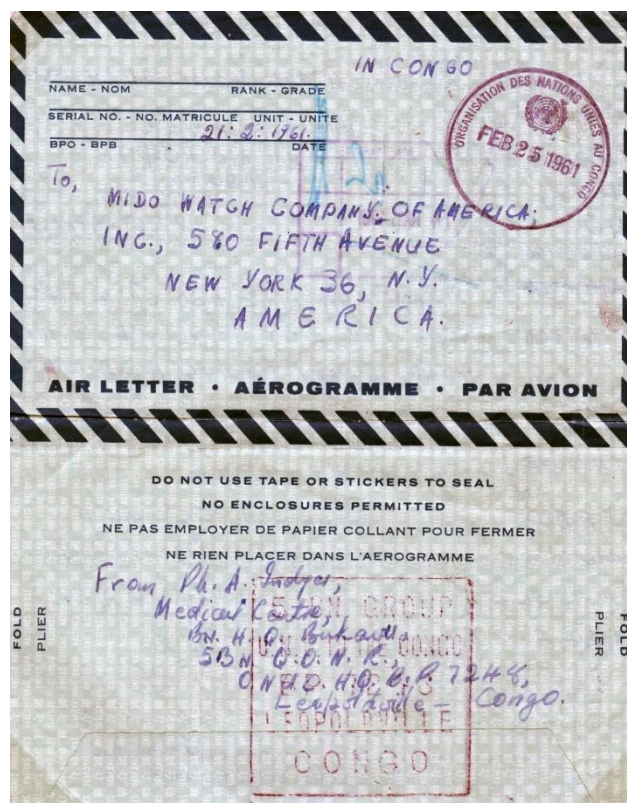 IN CONGO
NAME - NOM RANK - GRADE
SERIAL NO. - NO. MATRICULE UNIT - UNITE
21: 2: 1961.
BPO - BPB DATE
ORGANISATION DES NATIONS UNIES AU CONGO
FEB 25 1961
To,
MIDO WATCH COMPANY, OF AMERICA;
INC., 580 FIFTH AVENUE
NEW YORK 36, N.Y.
AMERICA.
AIR LETTER • AÉROGRAMME • PAR AVION
DO NOT USE TAPE OR STICKERS TO SEAL
NO ENCLOSURES PERMITTED
NE PAS EMPLOYER DE PAPIER COLLANT POUR FERMER
NE RIEN PLACER DANS L'AEROGRAMME
From Ph. A.
Medical Centre,
BN. H.Q.
5BN Q.O.N.R.,
H.Q. B.P. 7248,
Leopoldville - Congo.
GROUP
CONGO
LEOPOLDVILLE
CONGO
FOLD
PLIER
PLIER
FOLD